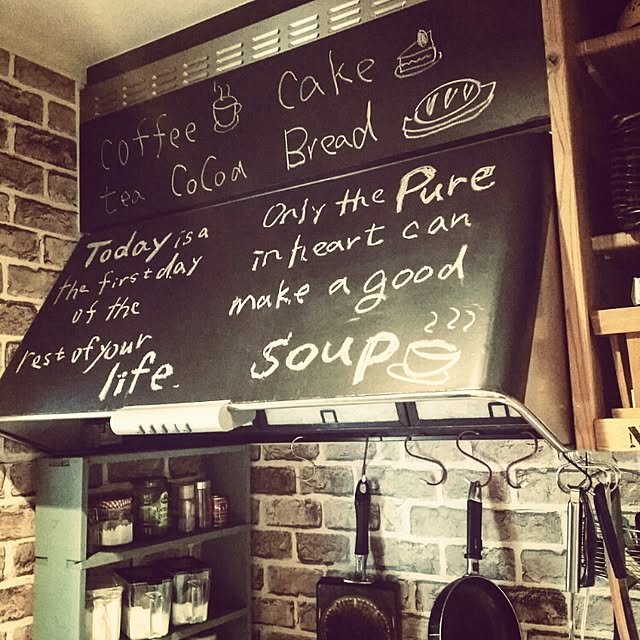 coffee Cake
tea CoCoa Bread
Today is a
the first day
of the
rest of your
life.
Only the Pure
in heart can
make a good
soup